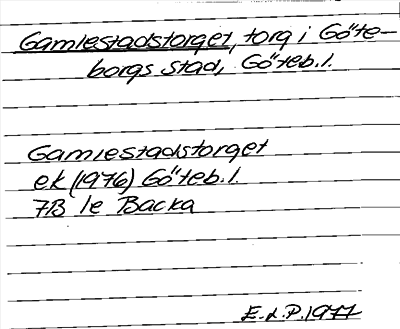 Gamlestadstorget, torg i Göte-
borgs stad, Göteb.l.
Gamlestadstorget
ek (1976) Göteb.l.
7B 1e Backa
E.d.P. 1977